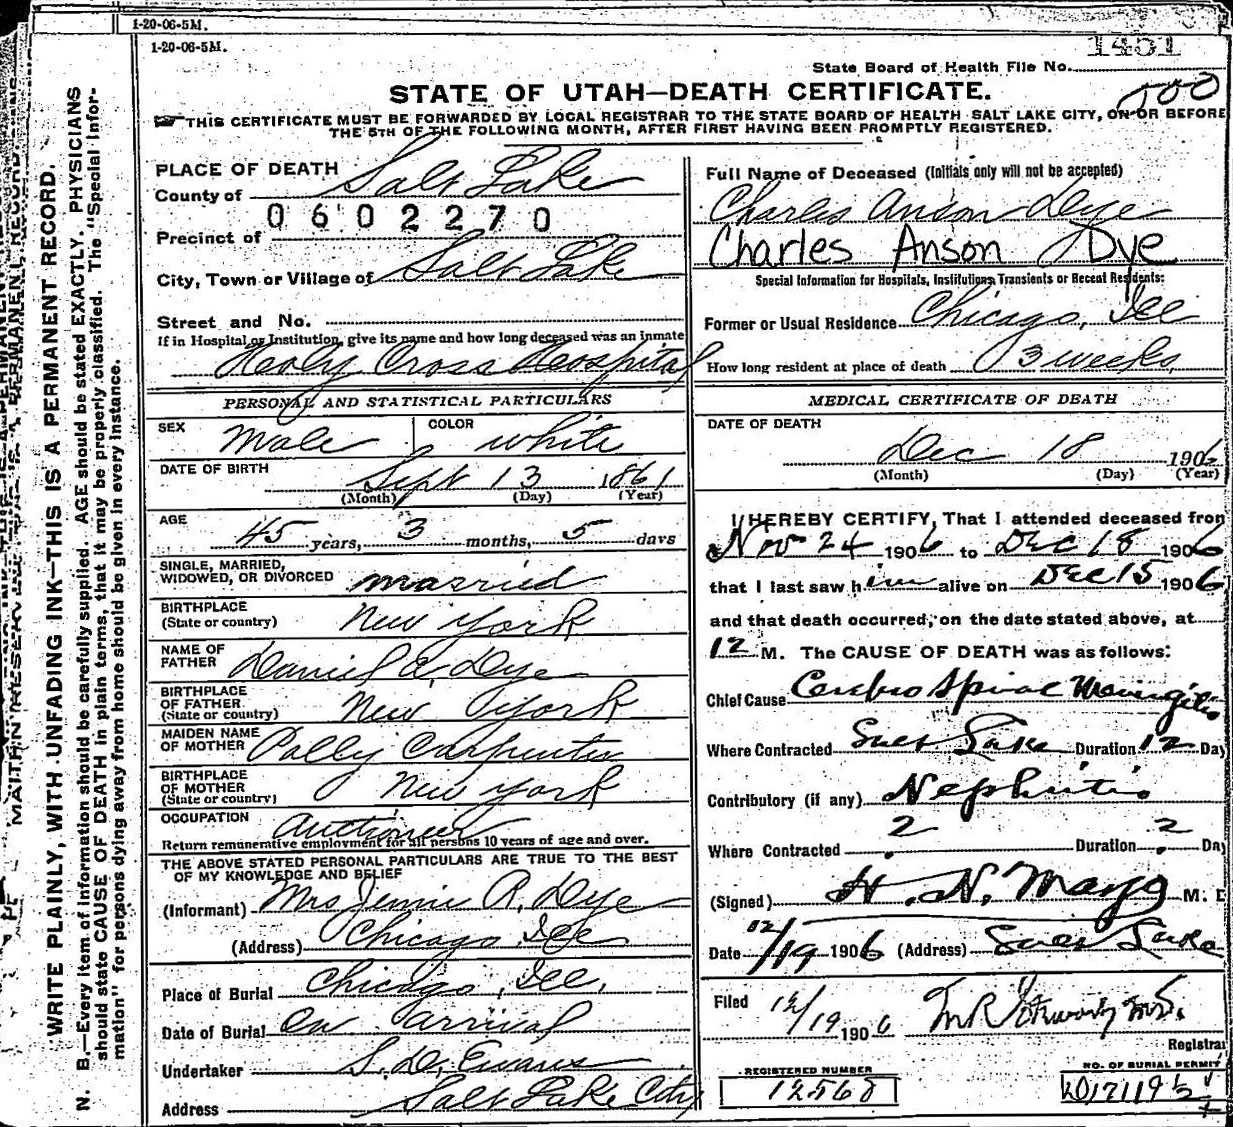 1-20-06-5M.
1-20-06-5M.
1451
State Board of Health File No.
500
STATE OF UTAH—DEATH CERTIFICATE.
THIS CERTIFICATE MUST BE FORWARDED BY LOCAL REGISTRAR TO THE STATE BOARD OF HEALTH SALT LAKE CITY, ON OR BEFORE
THE 5TH OF THE FOLLOWING MONTH, AFTER FIRST HAVING BEEN PROMPTLY REGISTERED.
PLACE OF DEATH
County of Salt Lake
0602270
Precinct of
City, Town or Village of Salt Lake
Street and No.
If in Hospital or Institution, give its name and how long deceased was an inmate
Holy Cross Hospital
PERSONAL AND STATISTICAL PARTICULARS
SEX Male COLOR White
DATE OF BIRTH Sept 13 1861
(Month) (Day) (Year)
AGE 45 years, 3 months, 5 days
SINGLE, MARRIED,
WIDOWED, OR DIVORCED married
BIRTHPLACE
(State or country) New York
NAME OF
FATHER Daniel E. Dye
BIRTHPLACE
OF FATHER
(State or country) New York
MAIDEN NAME
OF MOTHER Polly Carpenter
BIRTHPLACE
OF MOTHER
(State or country) New York
OCCUPATION Auctioneer
Return remunerative employment for all persons 10 years of age and over.
THE ABOVE STATED PERSONAL PARTICULARS ARE TRUE TO THE BEST
OF MY KNOWLEDGE AND BELIEF
(Informant) Mrs Jennie R. Dye
(Address) Chicago Ill
Place of Burial Chicago, Ill.
Date of Burial On arrival
Undertaker S. D. Evans
Address Salt Lake City
Full Name of Deceased (Initials only will not be accepted)
Charles Anson Dye
Charles Anson Dye
Special Information for Hospitals, Institutions, Transients or Recent Residents:
Former or Usual Residence Chicago, Ill
How long resident at place of death 3 weeks
MEDICAL CERTIFICATE OF DEATH
DATE OF DEATH
Dec 18 1906
(Month) (Day) (Year)
I HEREBY CERTIFY, That I attended deceased from
Nov 24 1906 to Dec 18 1906
that I last saw him alive on Dec 15 1906
and that death occurred, on the date stated above, at
12 M. The CAUSE OF DEATH was as follows:
Chief Cause Cerebro Spinal Meningitis
Where Contracted Salt Lake Duration 12 Day
Contributory (if any) Nephritis
Where Contracted ? Duration ? Day
(Signed) H. N. Mayo M. D
Date 12/19 1906 (Address) Salt Lake
Filed 12/19 1906
Registrar
REGISTERED NUMBER
12568
NO. OF BURIAL PERMIT
WRITE PLAINLY, WITH UNFADING INK—THIS IS A PERMANENT RECORD.
N. B.—Every item of information should be carefully supplied. AGE should be stated EXACTLY. PHYSICIANS
should state CAUSE OF DEATH in plain terms, that it may be properly classified. The "Special Infor-
mation" for persons dying away from home should be given in every instance.